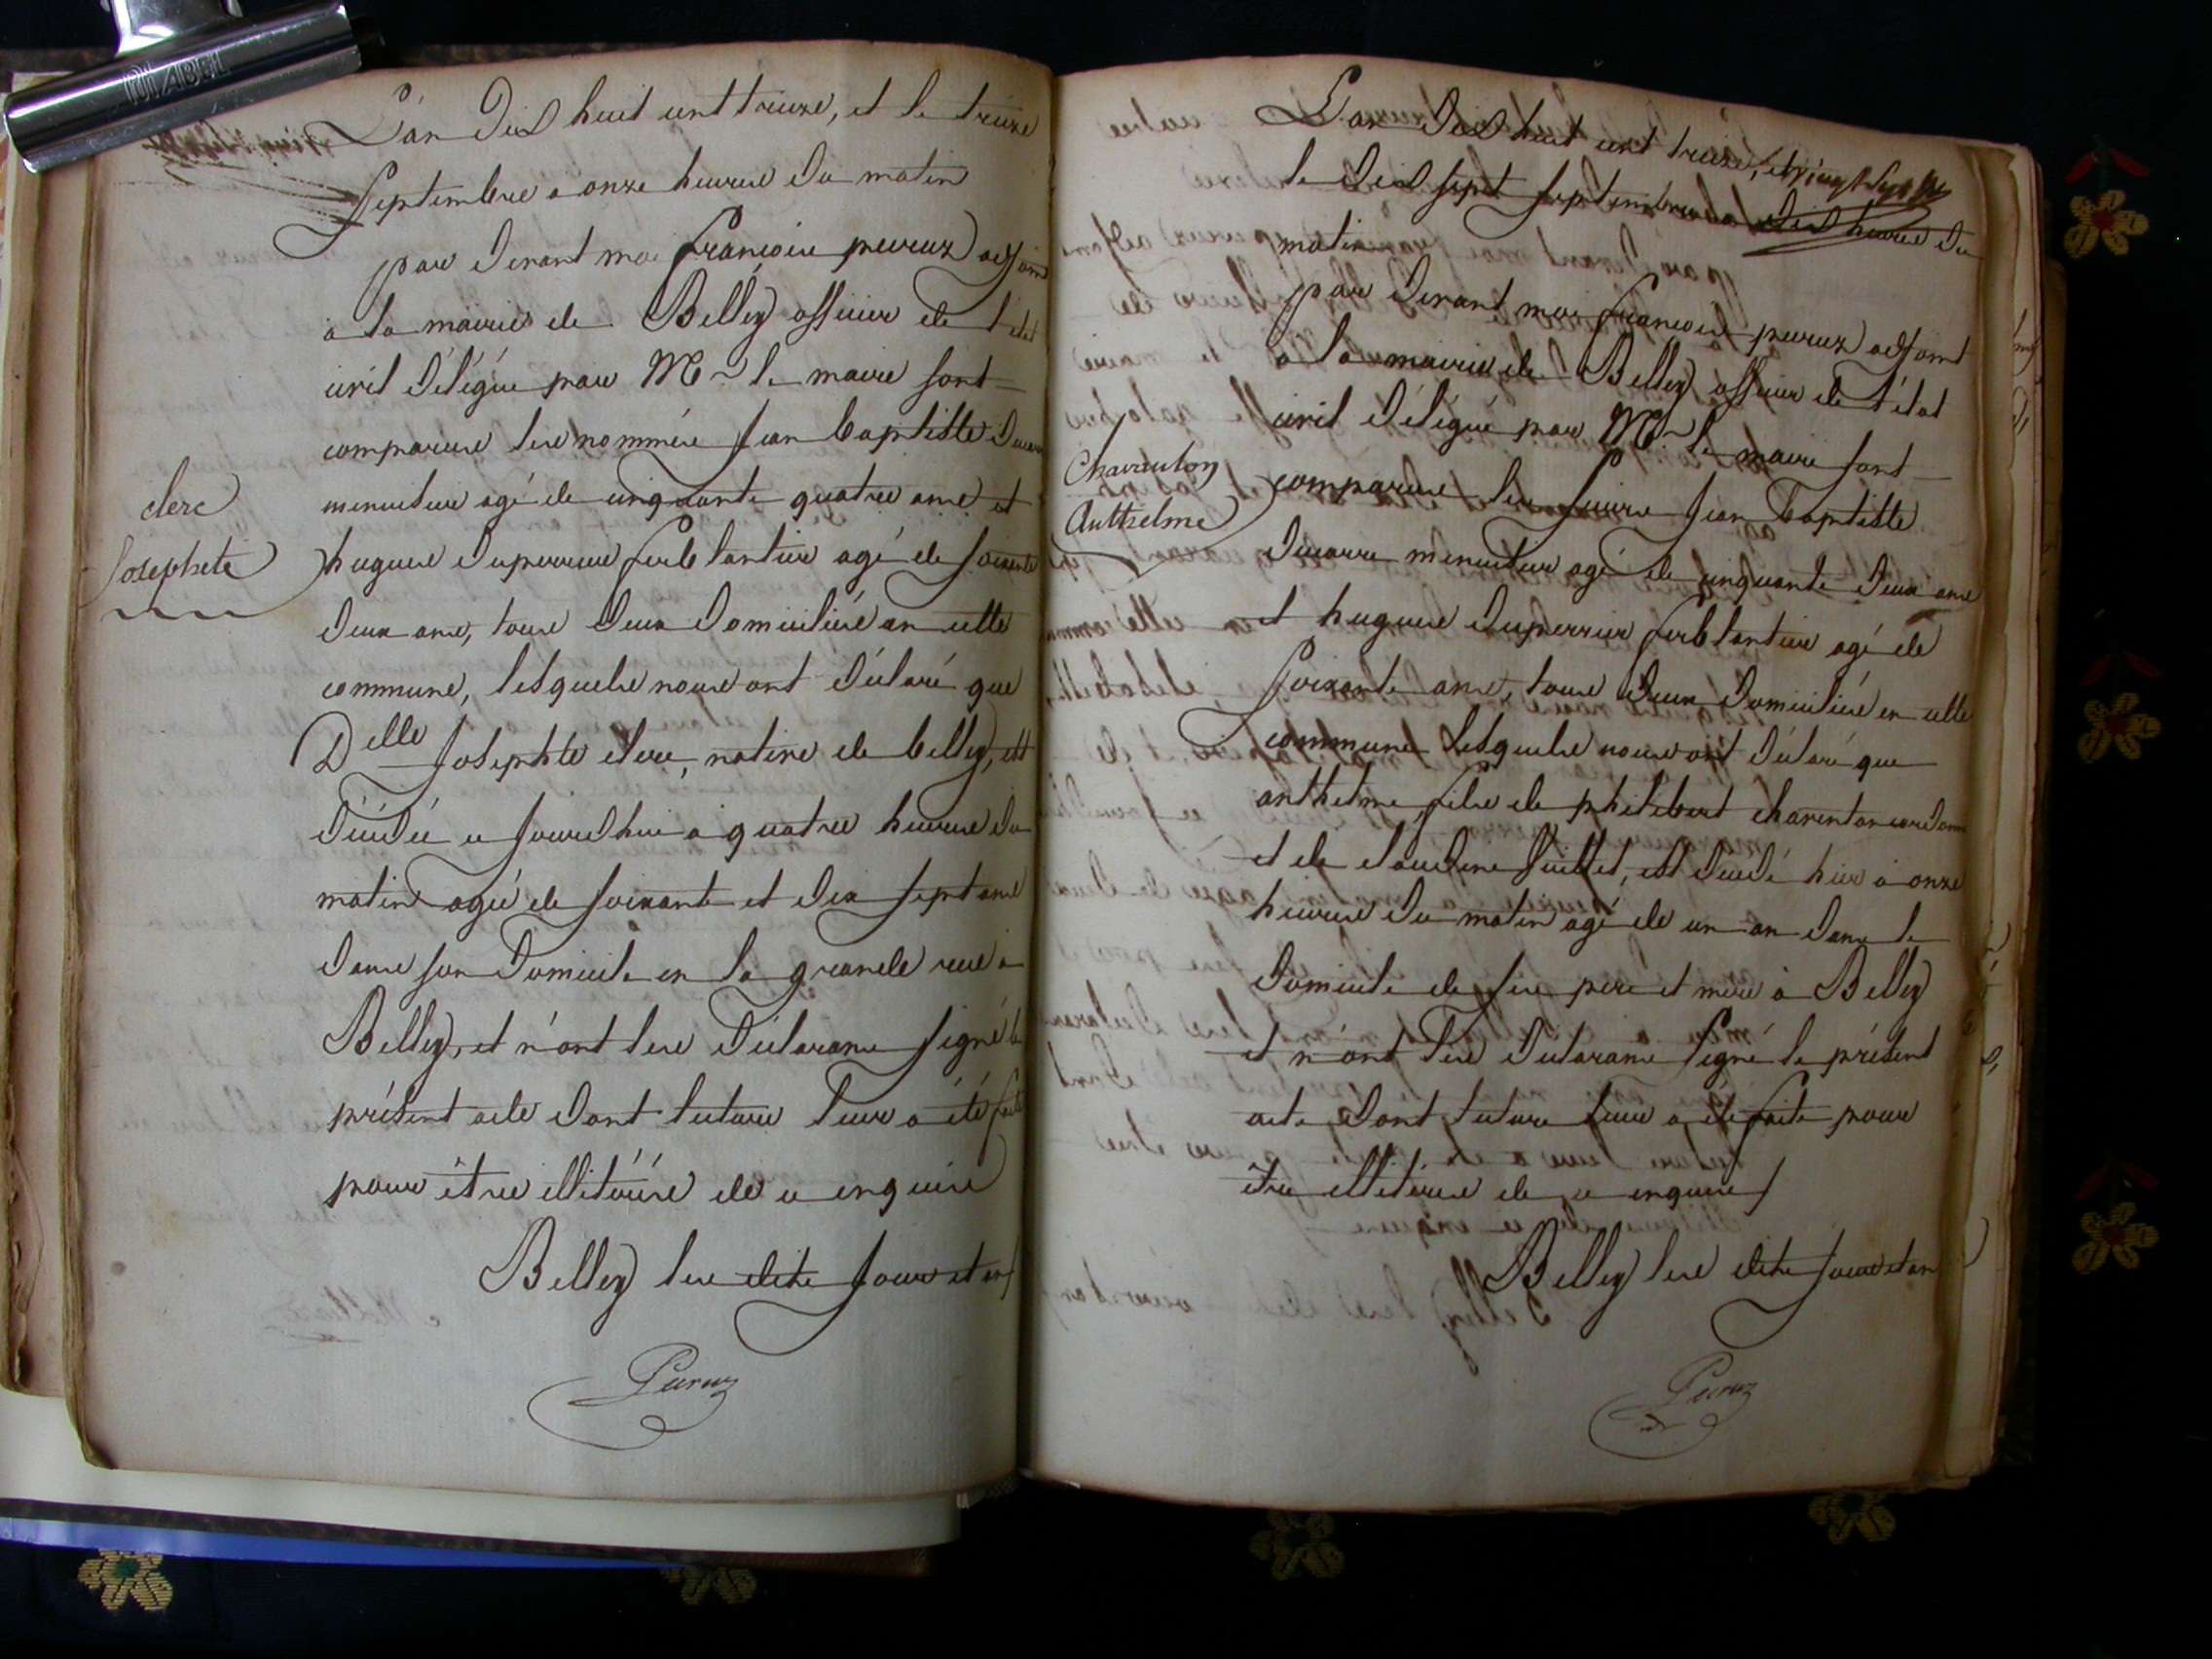 DIABEL
L'an Dix huit cent treize, et le treize
Septembre a onze heures du matin
par devant moi françois peruz adjoint
a la mairie de Belley officier de l'état
civil délégué par Mr le maire sont
comparus les nommés jean baptiste
menuisier agé de cinquante quatre ans et
hugues duperrier ferblantier agé de soixante
deux ans, tous deux domiciliés en cette
commune, lesquels nous ont déclaré que
Delle Josephte clerc, native de belley, est
décédée ce jourdhui a quatre heures du
matin agée de soixante et dix sept ans
dans son domicile en la grande rue a
Belley, et n'ont les déclarans signé le
présent acte dont lecture leur a été faite
pour être illitérés de ce enquis
Belley les dits jour et an
Peruz
clerc
Josephete
L'an Dix huit cent treize, et
le dix sept septembre a dix heures du
matin
par devant moi françois peruz adjoint
a la mairie de Belley officier de l'état
civil délégué par Mr le maire sont
comparus les sieurs jean baptiste
ducarre menuisier agé de cinquante deux ans
et hugues duperrier ferblantier agé de
soixante ans, tous deux domiciliés en cette
commune lesquels nous ont déclaré que
anthelme fils de philibert charenton
et de claudine, est décédé hier a onze
heures du matin agé de un an dans le
domicile de ses pere et mere a Belley
et n'ont les déclarans signé le présent
acte dont lecture leur a été faite pour
être illitérés de ce enquis
Belley les dits jour et an
Peruz
Charenton
Anthelme